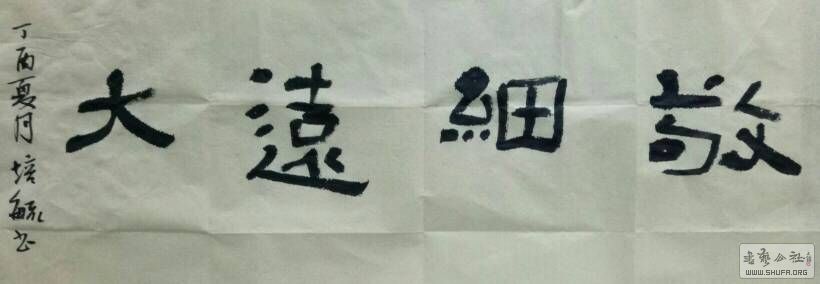 敬細遠大
丁酉夏月 培毓书
书艺公社
WWW.SHUFA.ORG